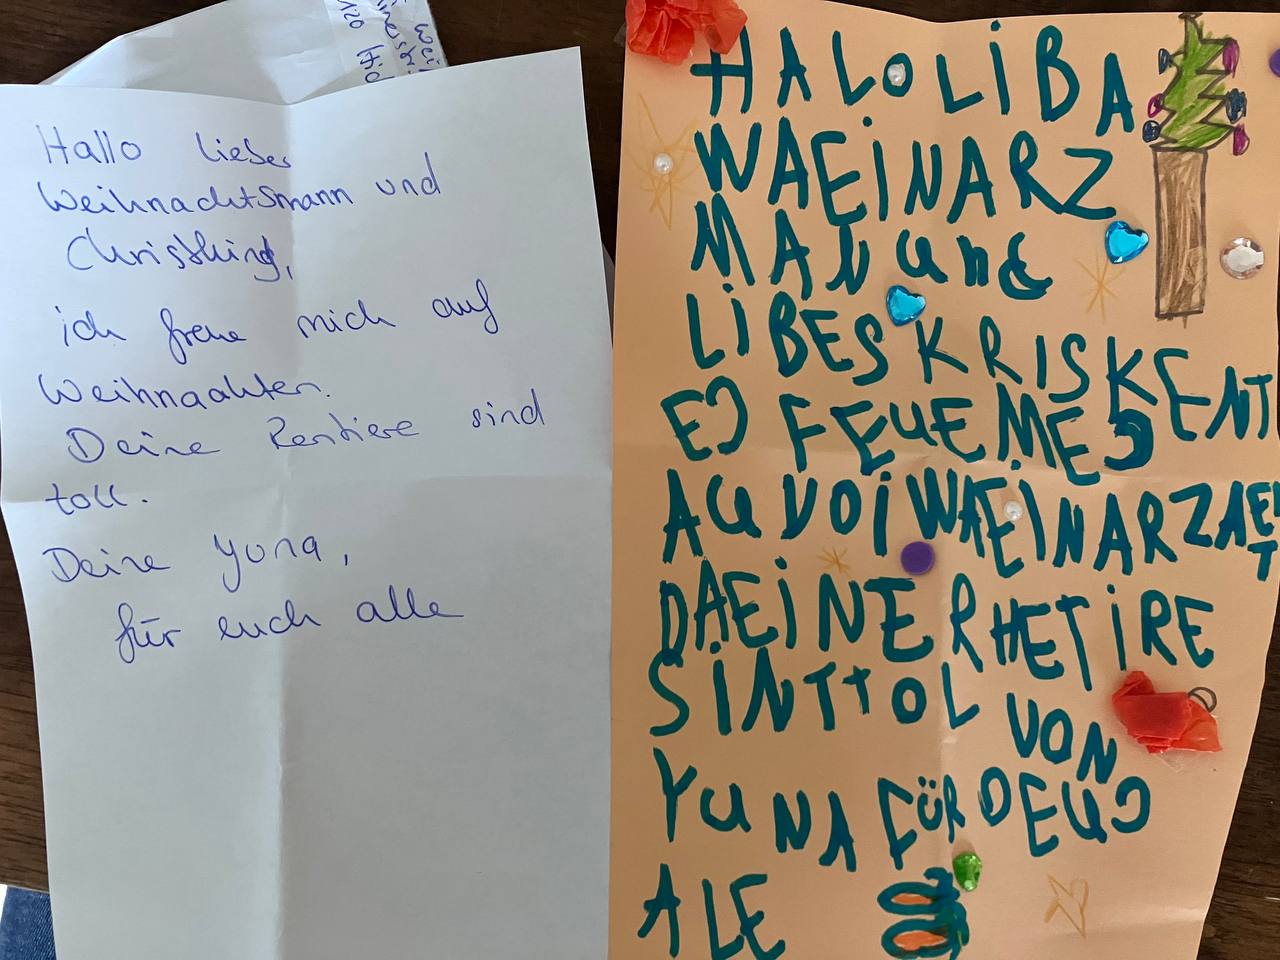 Hallo lieber
Weihnachtsmann und
Christkind,
ich freue mich auf
Weihnachten.
Deine Rentiere sind
toll.
Deine Yuna,
für euch alle
HALO LiBA
WAEiNARZ
MAN und
LiBES KRISKENT
EC FEUEMEC
AU VOi WAEiNARZAE
T
DAEiNE RHETiRE
SiNT tOL VON
YUNA FÜR DEUC
ALE
120